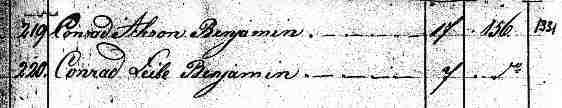 219 Conrad Ahron Benjamin. 17. 156. 1331
220. Conrad Leibe Benjamin 7. do